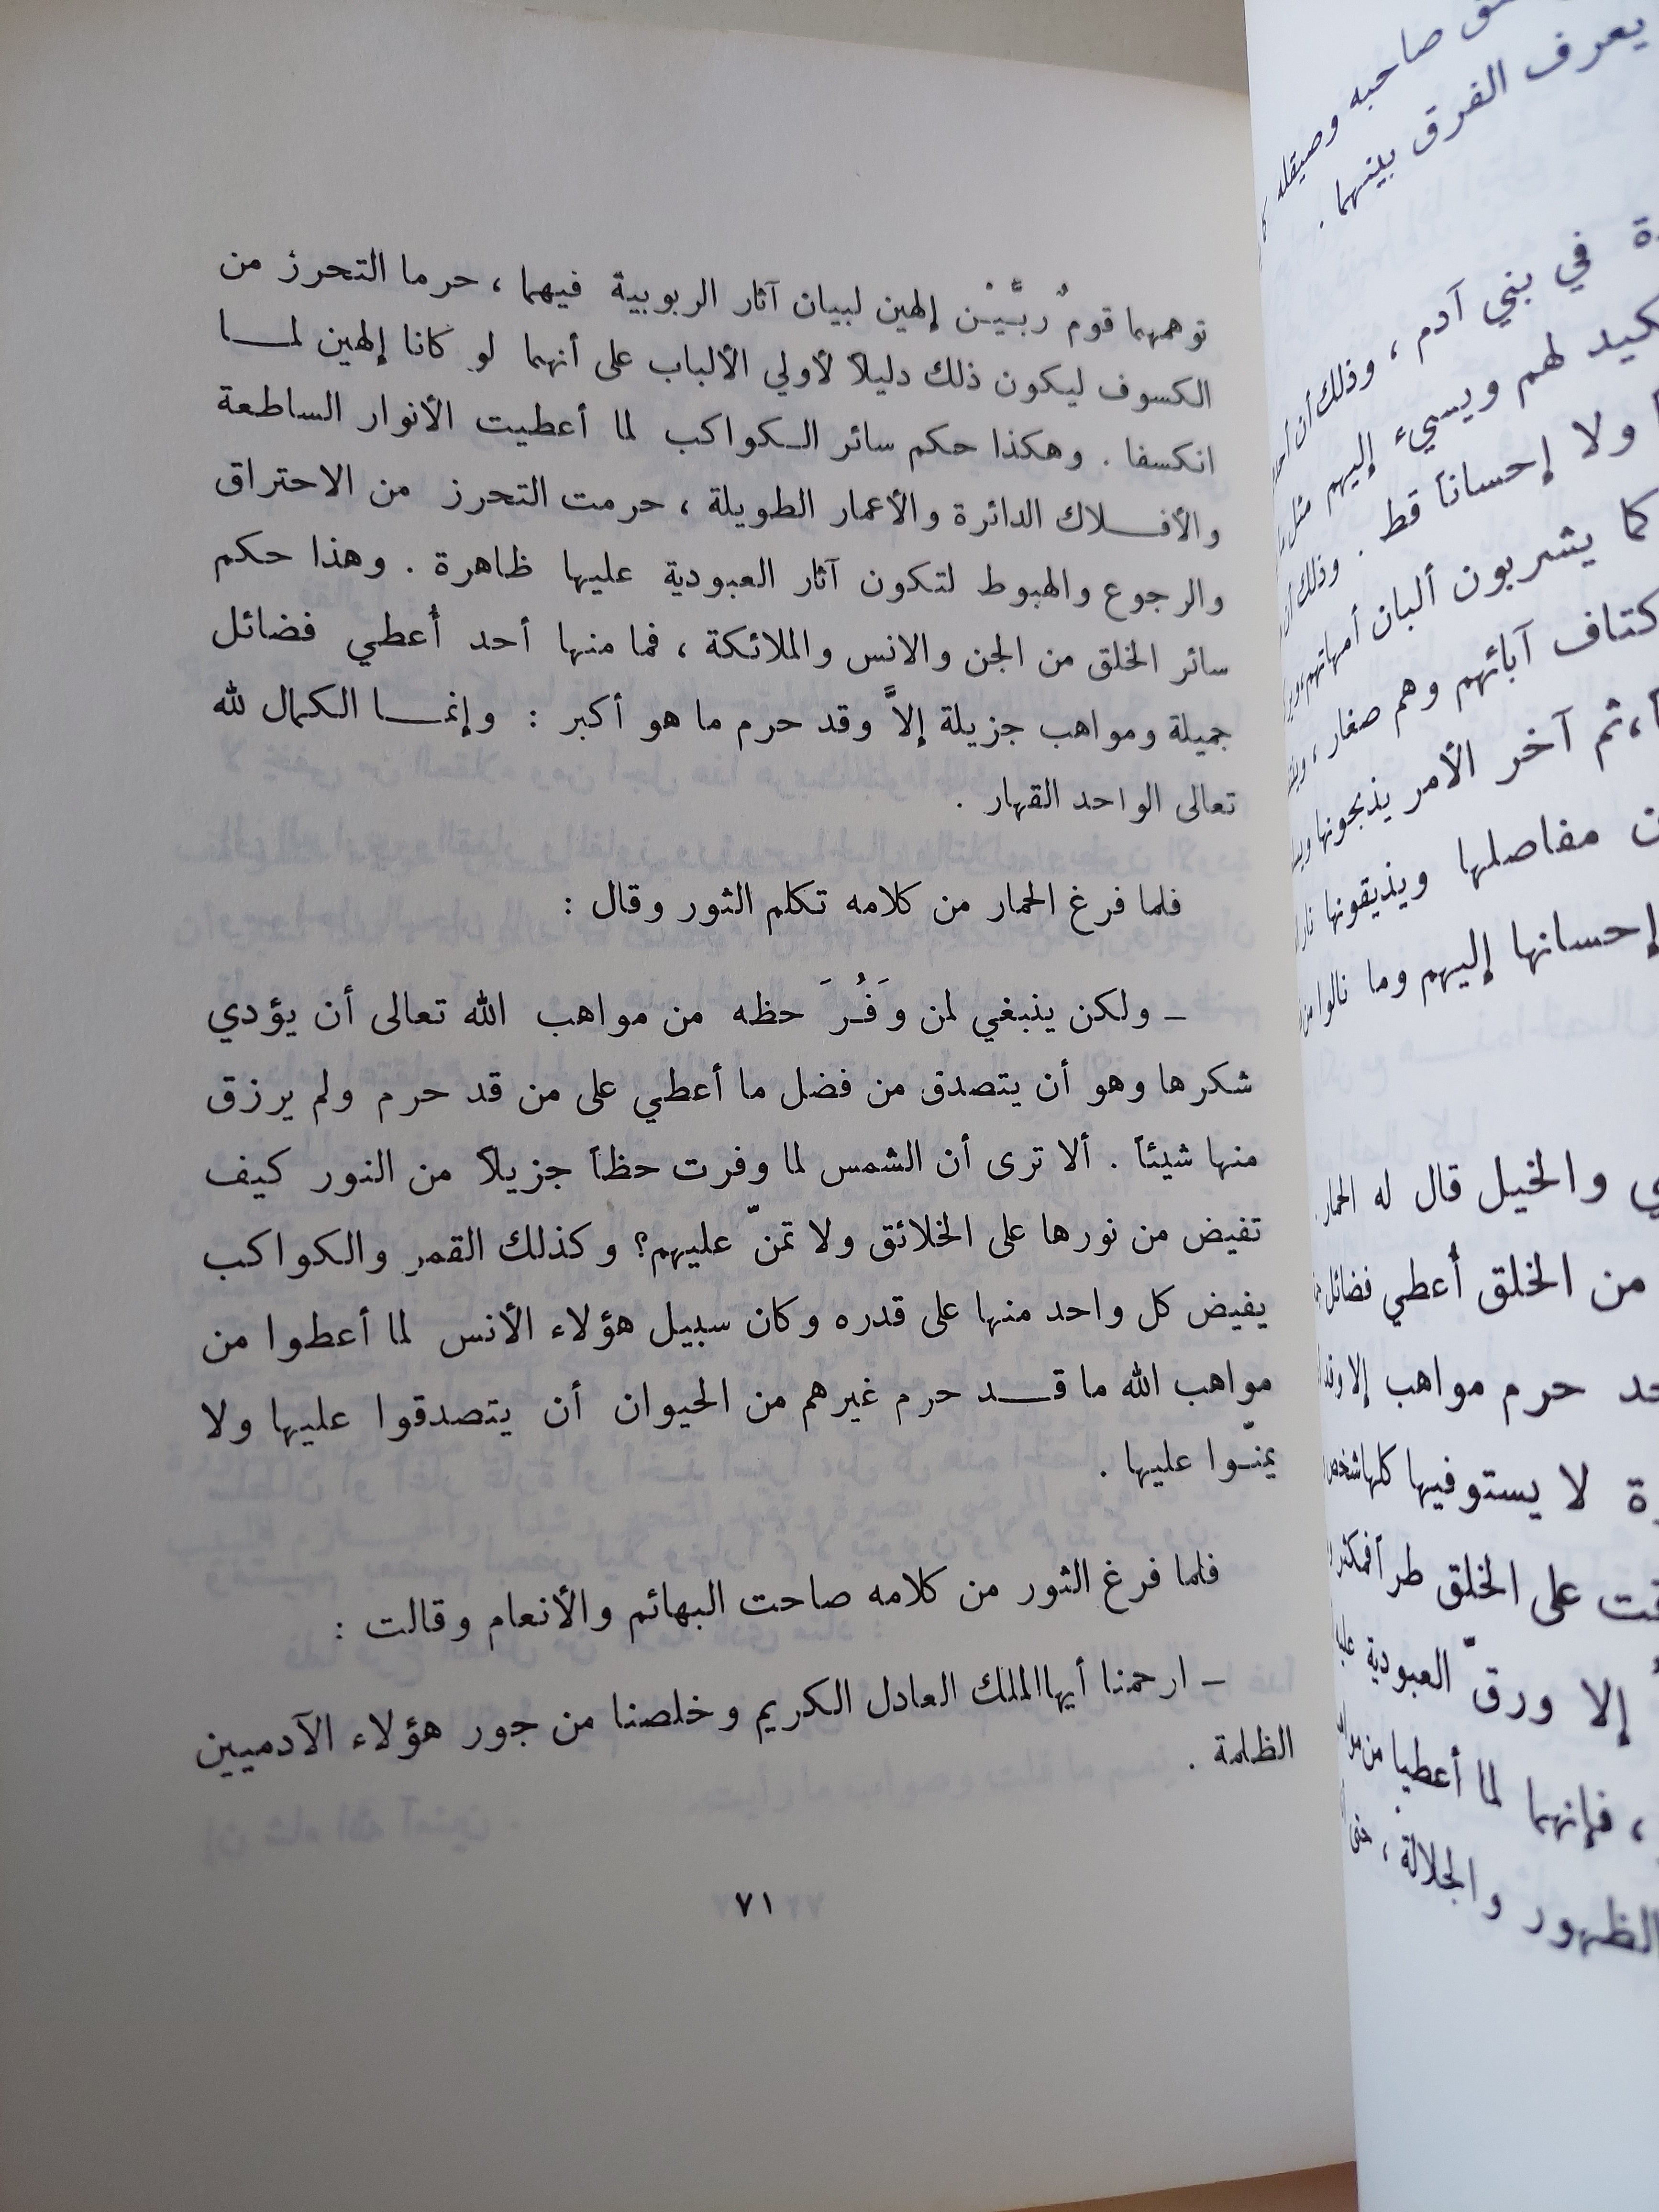 صاحبه وصيقله
يعرف الفرق بينهما .
في بني آدم ، وذلك أن
لهم ويسيء إليهم مثل
ولا إحساناً قط . وذلك
كما يشربون ألبان أمهاتهم
آبائهم وهم صغار ،
ثم آخر الأمر يذبحونها
مفاصلها ويذيقونها نار
إحسانها إليهم وما نالوا
والخيل قال له الحمار
من الخلق أعطي فضائل
حرم مواهب إلا
لا يستوفيها كلها شخص
على الخلق طرأ
إلا ورقّ العبودية
، فإنهما لما أعطيا من
الظهور والجلالة ، حتى
توهمهما قومٌ ربَّيْن إلهين لبيان آثار الربوبية فيهما ، حرما التحرز من
الكسوف ليكون ذلك دليلاً لأولي الألباب على أنهما لو كانا إلهين لمـــا
انكسفا . وهكذا حكم سائر الـكواكب لما أعطيت الأنوار الساطعة
والأفـــلاك الدائرة والأعمار الطويلة ، حرمت التحرز من الاحتراق
والرجوع والهبوط لتكون آثار العبودية عليها ظاهرة . وهذا حكم
سائر الخلق من الجن والانس والملائكة ، فما منها أحد أُعطي فضائل
جميلة ومواهب جزيلة إلاَّ وقد حرم ما هو أكبر : وإنمـــا الكمال لله
تعالى الواحد القهار .
فلما فرغ الحمار من كلامه تكلم الثور وقال :
ـ ولكن ينبغي لمن وَفُـرَ حظه من مواهب الله تعالى أن يؤدي
شكرها وهو أن يتصدق من فضل ما أعطي على من قد حرم ولم يرزق
منها شيئاً . ألا ترى أن الشمس لما وفرت حظاً جزيلاً من النور كيف
تفيض من نورها على الخلائق ولا تمنّ عليهم؟ وكذلك القمر والكواكب
يفيض كل واحد منها على قدره وكان سبيل هؤلاء الأنس لما أعطوا من
مواهب الله ما قـــد حرم غيرهم من الحيوان أن يتصدقوا عليها ولا
يمنّـوا عليها .
فلما فرغ الثور من كلامه صاحت البهائم والأنعام وقالت :
ـ ارحمنا أيها الملك العادل الكريم وخلصنا من جور هؤلاء الآدميين
الظلمة .
٧١